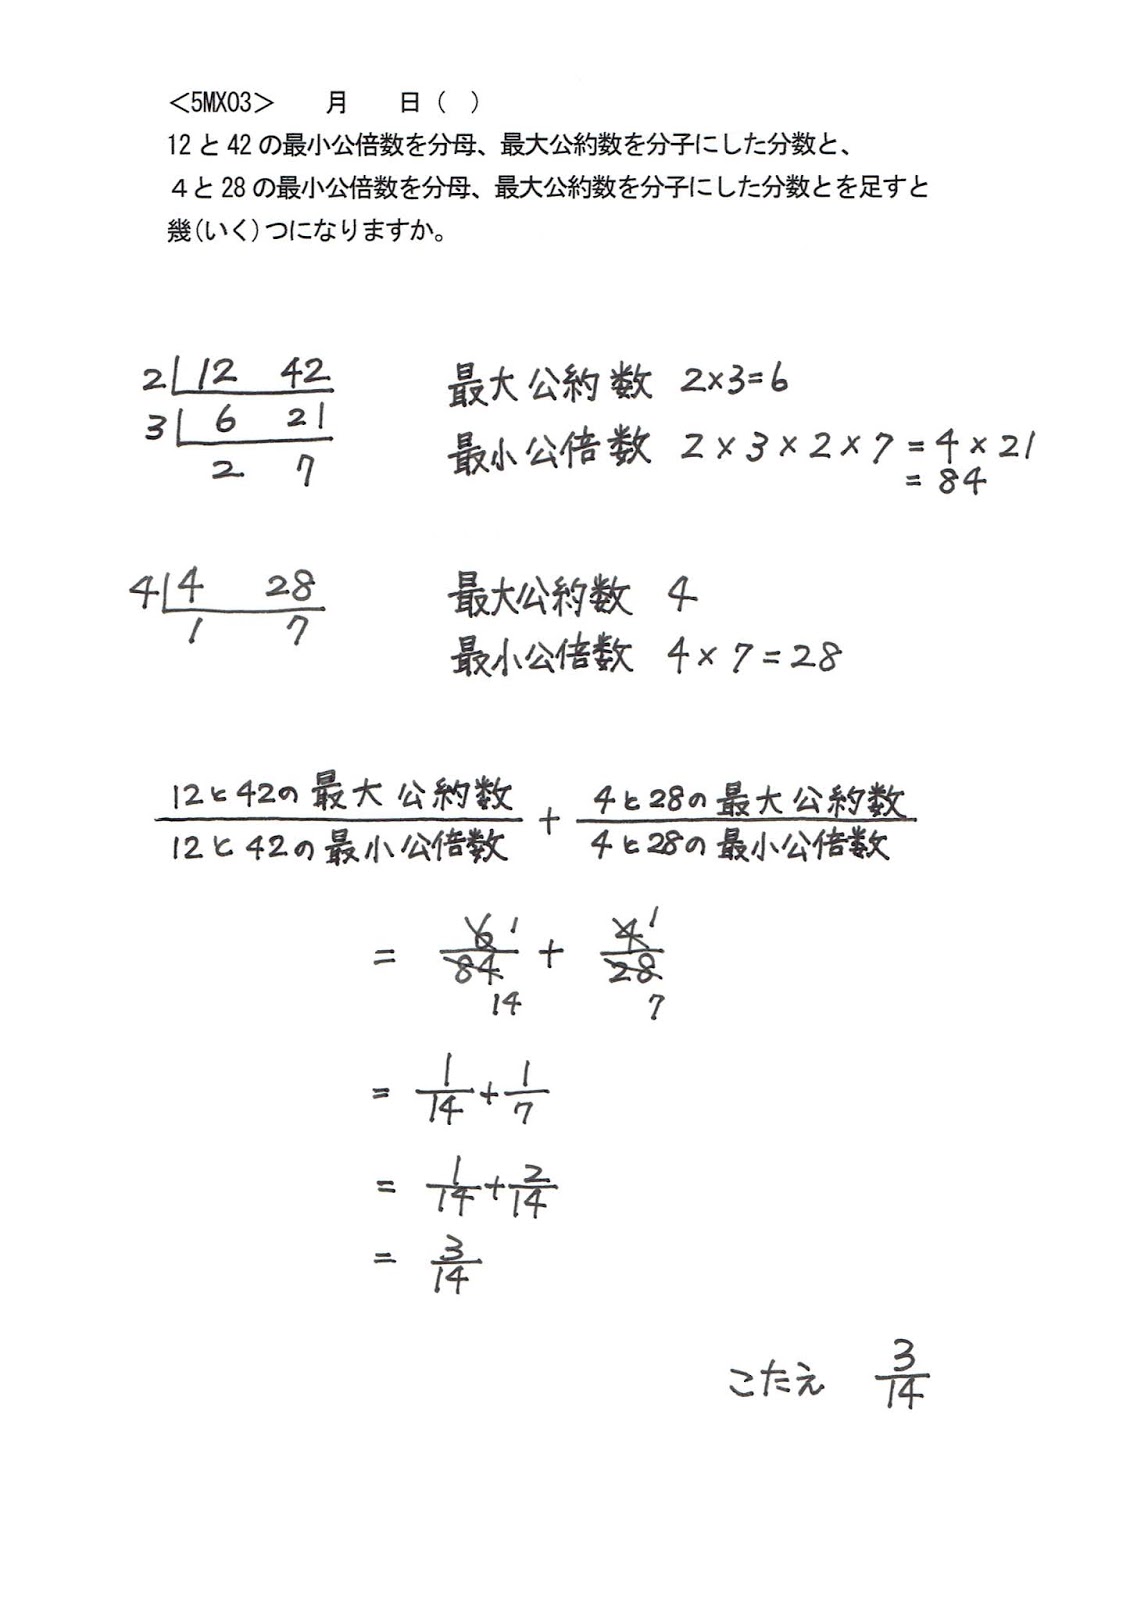 <5MX03>　　月　　日（　）
12と42の最小公倍数を分母、最大公約数を分子にした分数と、
4と28の最小公倍数を分母、最大公約数を分子にした分数とを足すと
幾（いく）つになりますか。
2 12 42 最大公約数 2×3=6
3 6 21 最小公倍数 2×3×2×7=4×21
2 7 =84
4 4 28 最大公約数 4
1 7 最小公倍数 4×7=28
12と42の最大公約数 + 4と28の最大公約数
12と42の最小公倍数 4と28の最小公倍数
= 6/84 + 4/28
1 1
14 7
= 1/14 + 1/7
= 1/14 + 2/14
= 3/14
こたえ 3/14